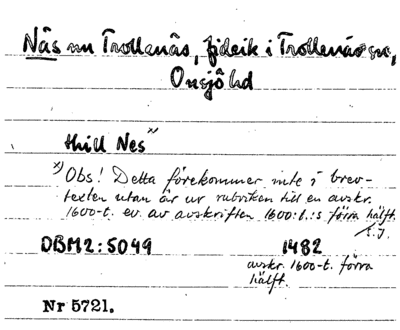 Näs nu Trollenäs, fideik i Trollenäs sn,
Onsjö hd
thill Nes x)
x) Obs! Detta förekommer inte i brev-
texten utan är ur rubriken till en avskr.
1600-t. ev. av avskriften 1600:t.:s förra hälft.
S.J.
DBM2:5049 1482
avskr. 1600-t. förra
hälft.
Nr 5721.